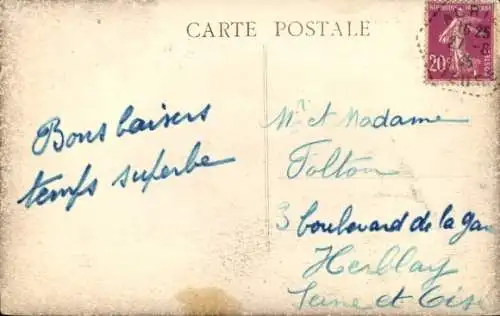 CARTE POSTALE
20c
POSTES
Bons baisers
temps superbe
Mr et Madame
Folton
3 boulevard de la gar
Herblay
Seine et Oise